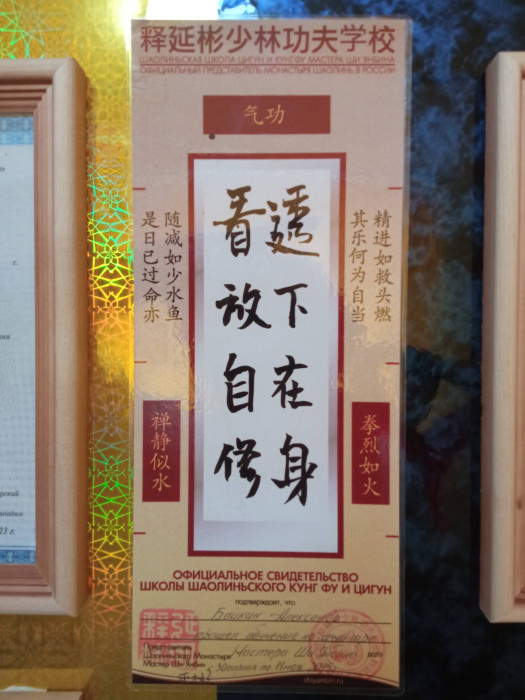 释延彬少林功夫学校
ШАОЛИНЬСКАЯ ШКОЛА ЦИГУН И КУНГФУ МАСТЕРА ШИ ЯНБИНА
ОФИЦИАЛЬНЫЙ ПРЕДСТАВИТЕЛЬ МОНАСТЫРЯ ШАОЛИНЬ В РОССИИ
气功
看透
放下
自在
修身
精进如救头燃
其乐何为自当
随减如少水鱼
是日已过命亦
拳烈如火
禅静似水
ОФИЦИАЛЬНОЕ СВИДЕТЕЛЬСТВО
ШКОЛЫ ШАОЛИНЬСКОГО КУНГ ФУ И ЦИГУН
подтверждает, что
Александр
прошел обучение на семинаре
Представитель
Шаолиньского Монастыря
Мастер Ши Янбин
Мастера Ши Янбина
shiyanbin.ru
г.
23 г.